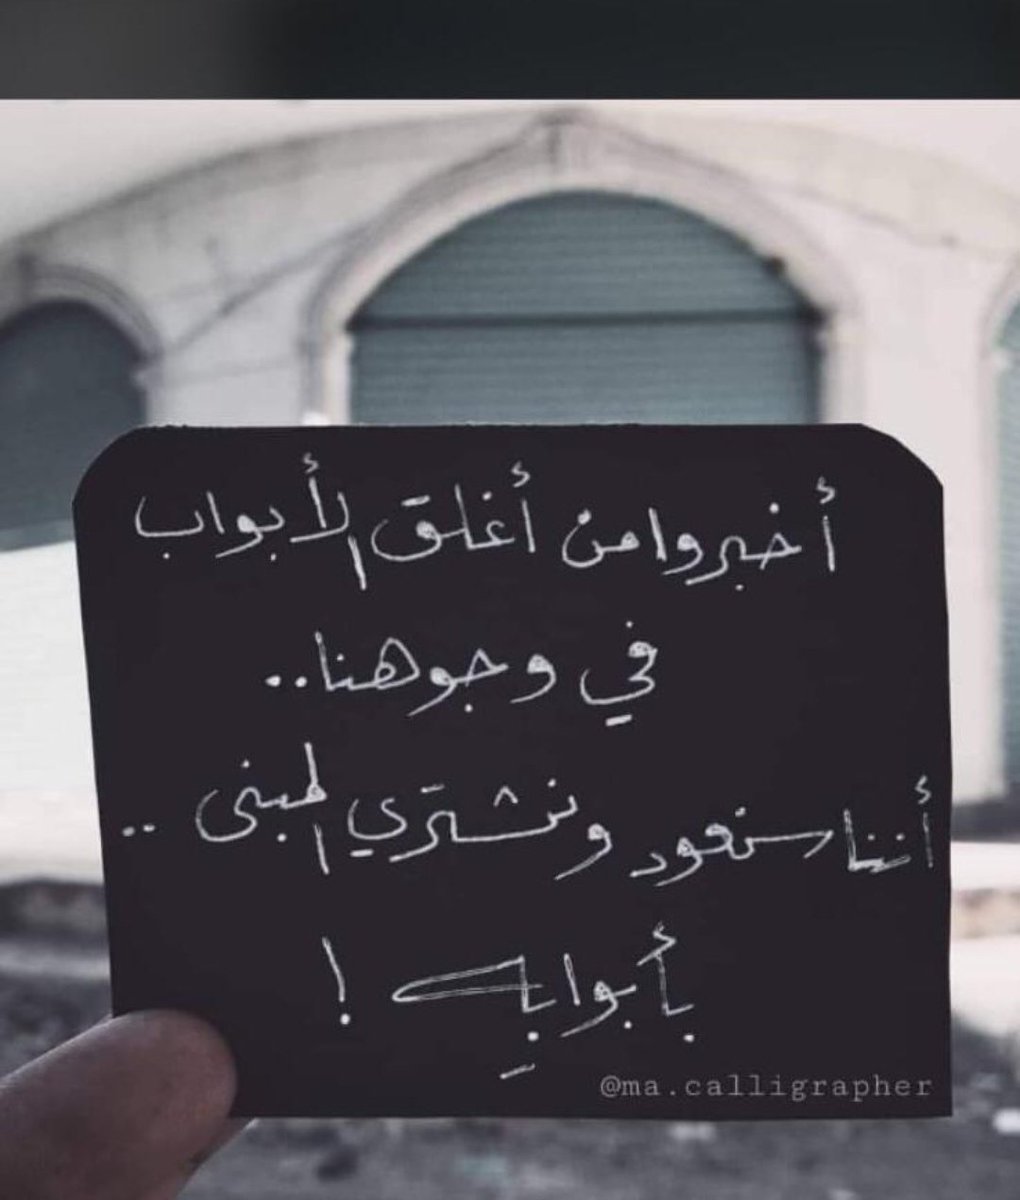 أخبروا من أغلق الأبواب
في وجوهنا..
أننا سنعود ونشتري المبنى ..
بأبوابِه !
@ma.calligrapher